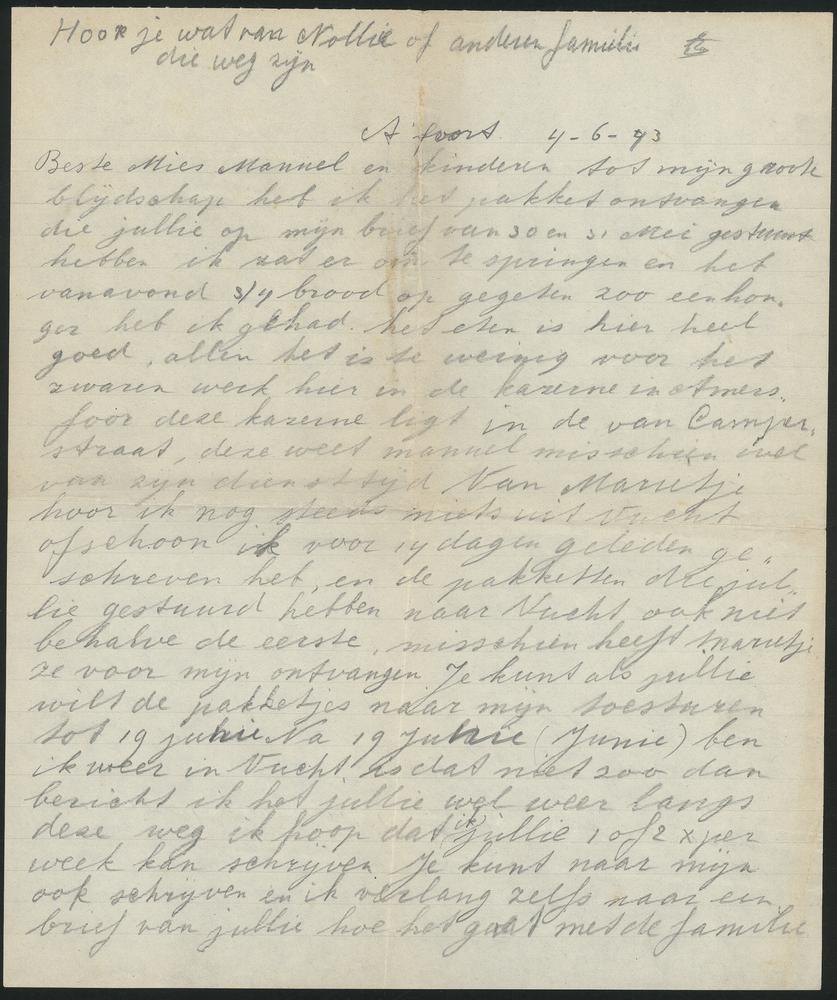 Hoor je wat van Nollie of anderen familie
die weg zijn
A'foort. 4-6-43
Beste Mies Manuel en kinderen tot mijn groote
blijdschap heb ik het pakket ontvangen
die jullie op mijn brief van 30 en 31 Mei gestuurt
hebben ik zat er om te springen en heb
vanavond 3/4 brood op gegeten zoo een hon-
ger heb ik gehad. het eten is hier heel
goed, allen het is te weinig voor het
zwaren werk hier in de kazerne in Amers-
foor deze kazerne ligt in de van Campen-
straat, deze weet manuel misschien wel
van zijn diensttijd Van Marietje
hoor ik nog steeds niets uit Vucht
ofschoon ik voor 14 dagen geleden ge-
schreven heb, en de pakketten die jul-
lie gestuurd hebben naar Vucht ook niet
behalve de eerste, misschien heeft Marietje
ze voor mijn ontvangen Je kunt als jullie
wilt de pakketjes naar mijn toesturen
tot 19 juhie Na 19 Juhie (Junie) ben
ik weer in Vucht is dat niet zoo dan
bericht ik het jullie wel weer langs
deze weg ik hoop dat (ik) jullie 1 of 2 x per
week kan schrijven. Je kunt naar mijn
ook schrijven en ik verlang zelfs naar een
brief van jullie hoe het gaat met de familie